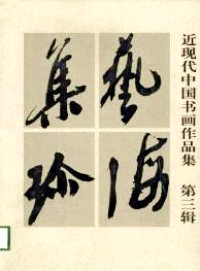 近现代中国书画作品集 第三辑
藝海
集珍